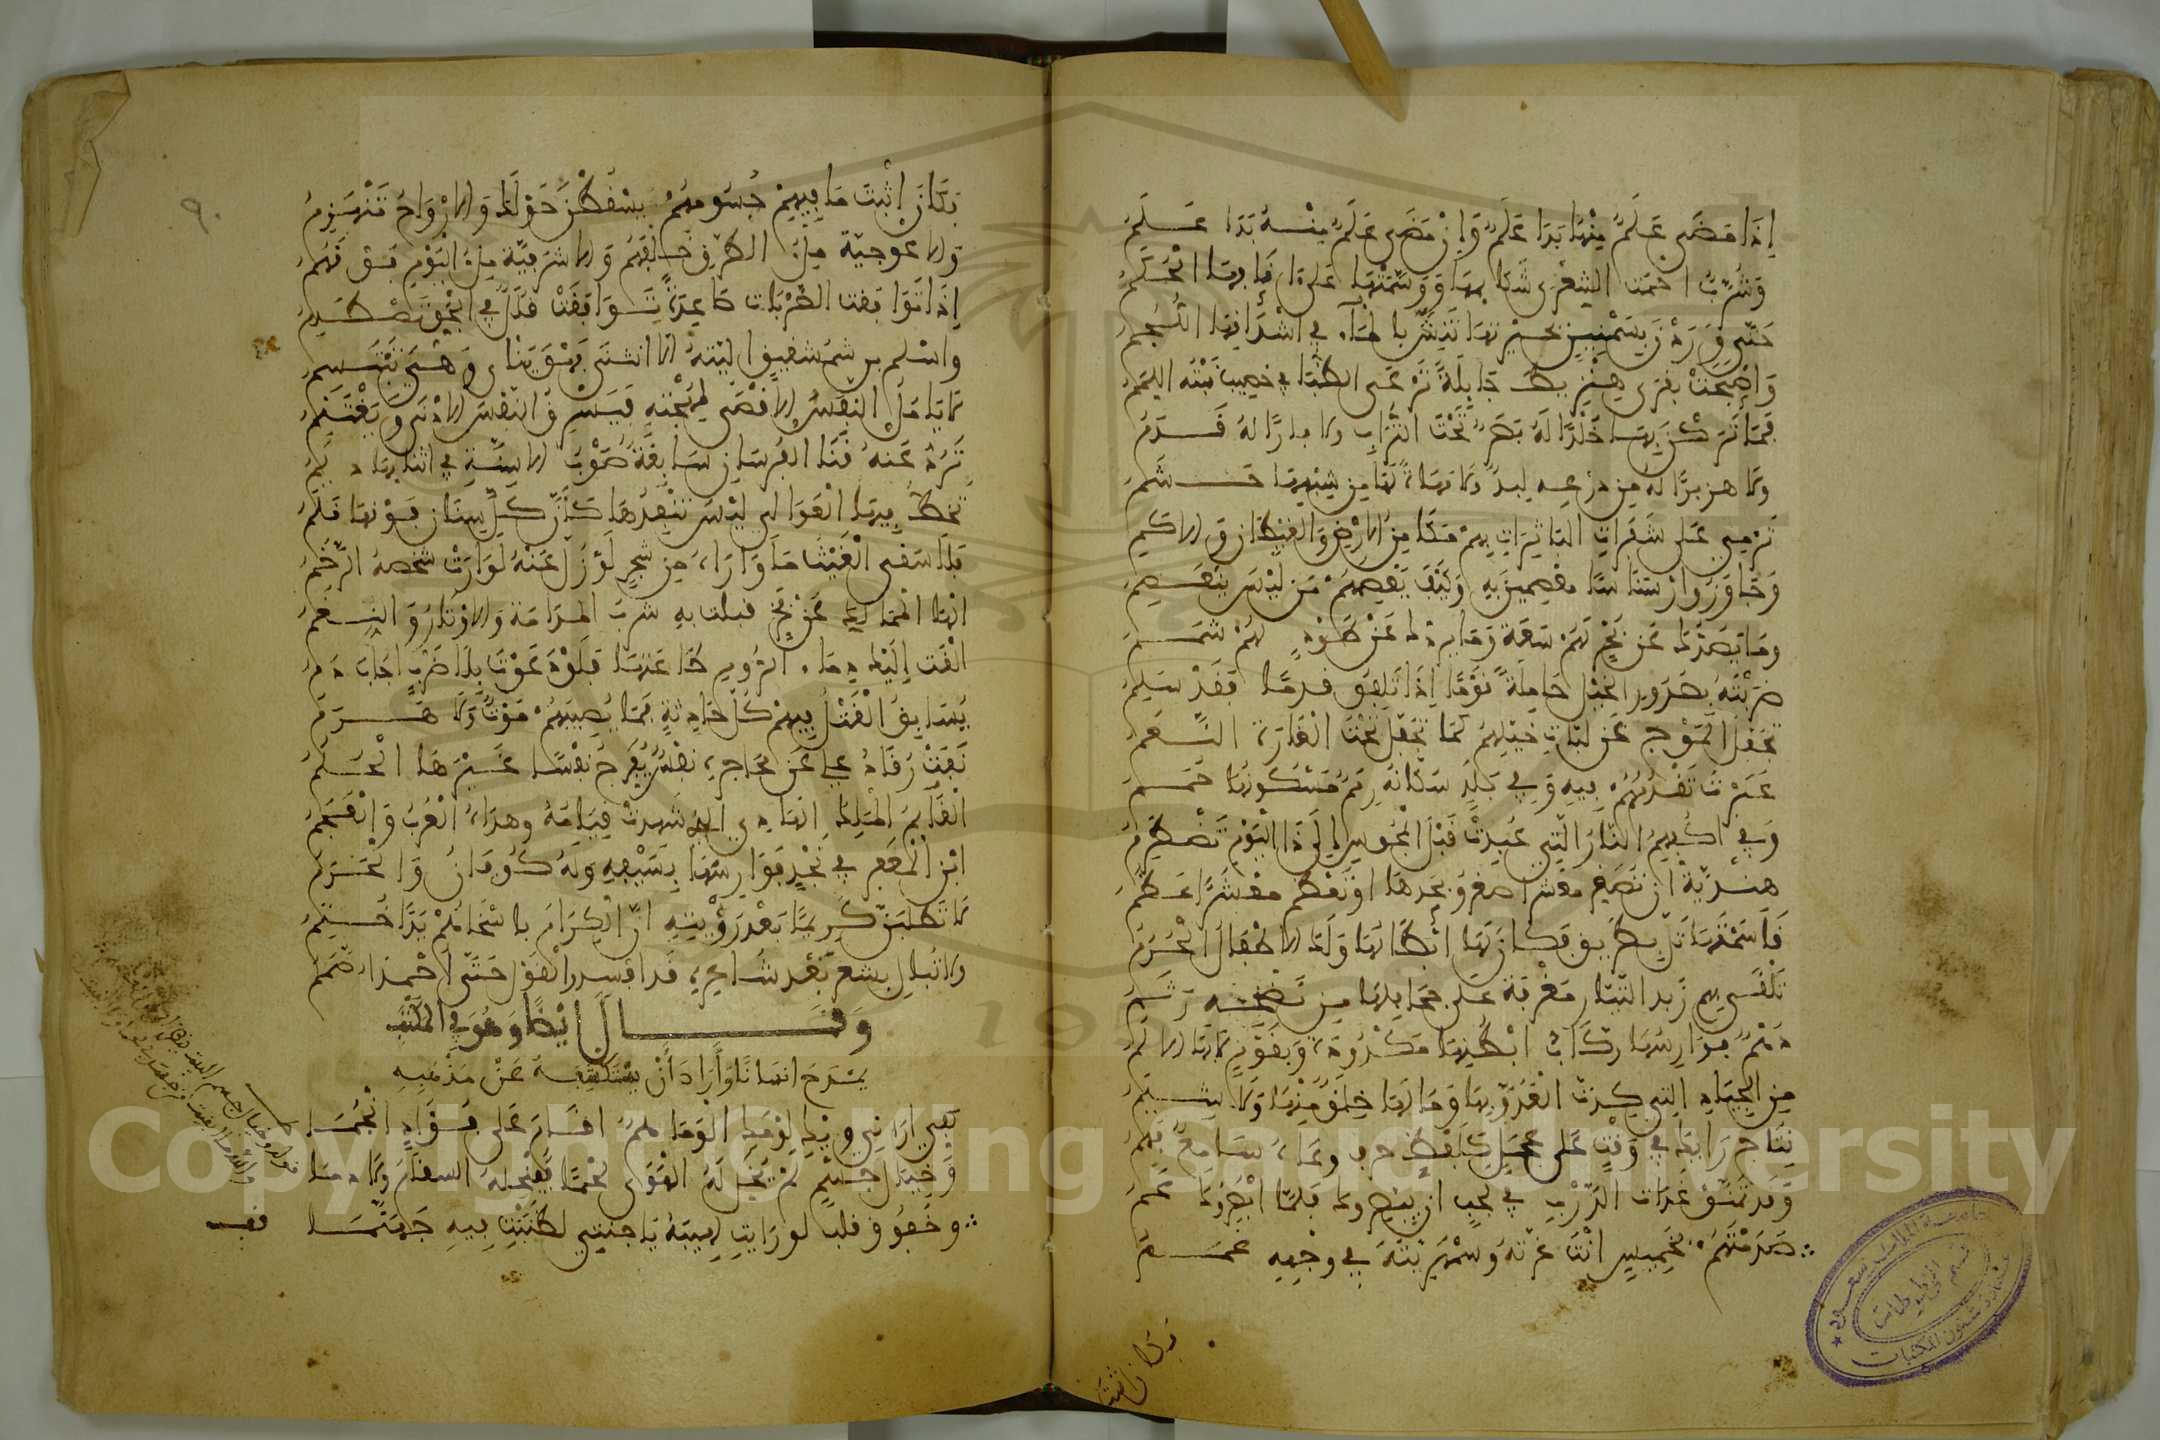 إذا مضى علم منها بدا علم وإن مضى علم منه بدا علم
وشزب احمت الشعرى شكايمها ووسمتها على انافها الحكم
حتى وردن بسمنين بحيرتها تنش بالماء في اشداقها اللجم
وأصبحت بقرى هنزيط جايلة ترعى الظبا في خصيب نبته اللمم
فما تركن بها خلدا له بصر تحت التراب ولا بازا له قدم
ولا هزبرا له من درعه لبد ولا مهاة لها من شبهها حشم
ترمي على شفرات الباترات بهم مكامن الارض والغيطان والاكم
وجاوزوا ارسناسا معصمين به وكيف يعصمهم من ليس ينعصم
وما يصدك عن بحر لهم سعة وما يردك عن طود لهم شمم
ضربته بصدور الخيل حاملة قوما إذا تلفوا قدما فقد سلم
تجفل الموج عن لبات خيلهم كما تجفل تحت الغارة النعم
عبرت تقدمهم فيه وفي بلد سكانه رمم مسكونها حمم
وفي اكفهم النار التي عبدت قبل المجوس إلى ذا اليوم تضطرم
هندية ان تصغر معشرا صغروا بحدها او تعظم معشرا عظم
قاسمتها تل بطريق فكان لها أبطالها ولك الاطفال والحرم
تلقى بهم زبد التيار مقربة على جحافلها من نضحه رثم
دهم فوارسها ركاب ابطنها مكدودة وبقوم لا بها الالم
من الجياد التي كدت العدو بها وما لها خلق منها ولا شيم
نتاج رايك في وقت على عجل كلفظ حرف وعاه سامع فهم
وقد تمنوا غداة الدرب في لجب ان يبصروك فلما ابصروك عم
صدمتهم بخميس انت غرته وسمهريته في وجهه غمم
فكان اثبت
فكان إثبت ما فيهم جسومهم يسقطن حولك والارواح تنهزم
والاعوجية ملء الطرق خلفهم والمشرفية ملء اليوم فوقهم
إذا توافقت الضربات صاعدة توافقت قلل في الجو تصطدم
واسلم بن شمشقيق اليته الا انثنى فهو ينأى وهي تبتسم
لا يامل النفس الاقصى لمهجته فيسرق النفس الادنى ويغتنم
ترد عنه قنا الفرسان سابغة صوب الاسنة في اثنايها ديم
تخط فيها العوالي ليس تنفذها كأن كل سنان فوقها قلم
فلا سقى الغيث ما واراه من شجر لو زل عنه لوارت شخصه الرخم
الهى الممالك عن فخر قفلت به شرب المدامة والاوتار والنغم
القت إليك دماء الروم طاعتها فلو دعوت بلا ضرب اجاب دم
يسابق القتل فيهم كل حادثة فما يصيبهم موت ولا هرم
نفت رقاد علي عن محاجره نفس يفرج نفسا غيرها الحلم
القايم الملك الهادي الذي شهدت قيامه وهداه العرب والعجم
ابن المعفر في نجد فوارسها بسيفه وله كوفان والحرم
لا تطلبن كريما بعد رؤيته ان الكرام باسخاهم يدا ختم
ولا تبال بشعر بعد شاعره قد افسد القول حتى احمد الصمم
وقال ايضا وهو في المكتب
يمدح انسانا وأراد أن يستكشفه عن مذهبه
كفي اراني ويك لومك الوما هم اقام على فؤاد انجما
وخيال جسم لم يخل له الهوى لحما فينحله السقام ولا دما
وخفوق قلب لو رايت لهيبه يا جنتي لظننت فيه جهنما
٩٠
جامعة الملك سعود
قسم المخطوطات
عمادة شئون المكتبات
Copyright © King Saud University